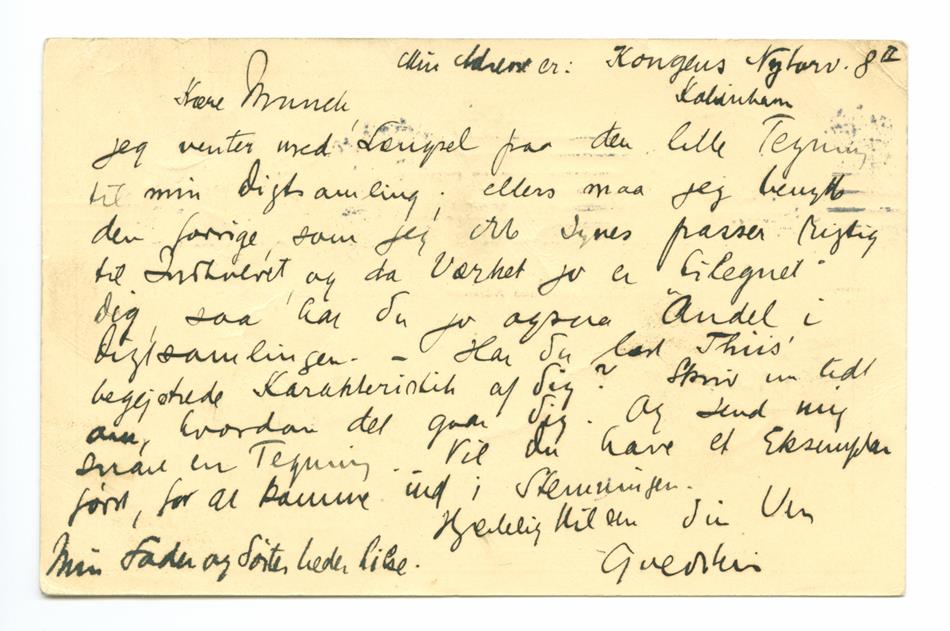 Min Adresse er: Kongens Nytorv. 8 II
Kære Munch, København
jeg venter med Længsel paa den lille Tegning
til min Digtsamling, ellers maa jeg benytte
den forrige, som jeg ikke synes passer rigtig
til Indholdet, og da Værket jo er tilegnet
Dig, saa har du jo ogsaa Andel i
Digtsamlingen. – Har du læst Thiis'
begejstrede Karakteristik af Dig? Skriv en lidt
om, hvordan det gaar Dig. Og send mig
snart en Tegning. Vil du have et Eksemplar
først, for at komme ind i Stemningen.
Hjertelig Hilsen din Ven
Min Fader og Søster beder hilse.